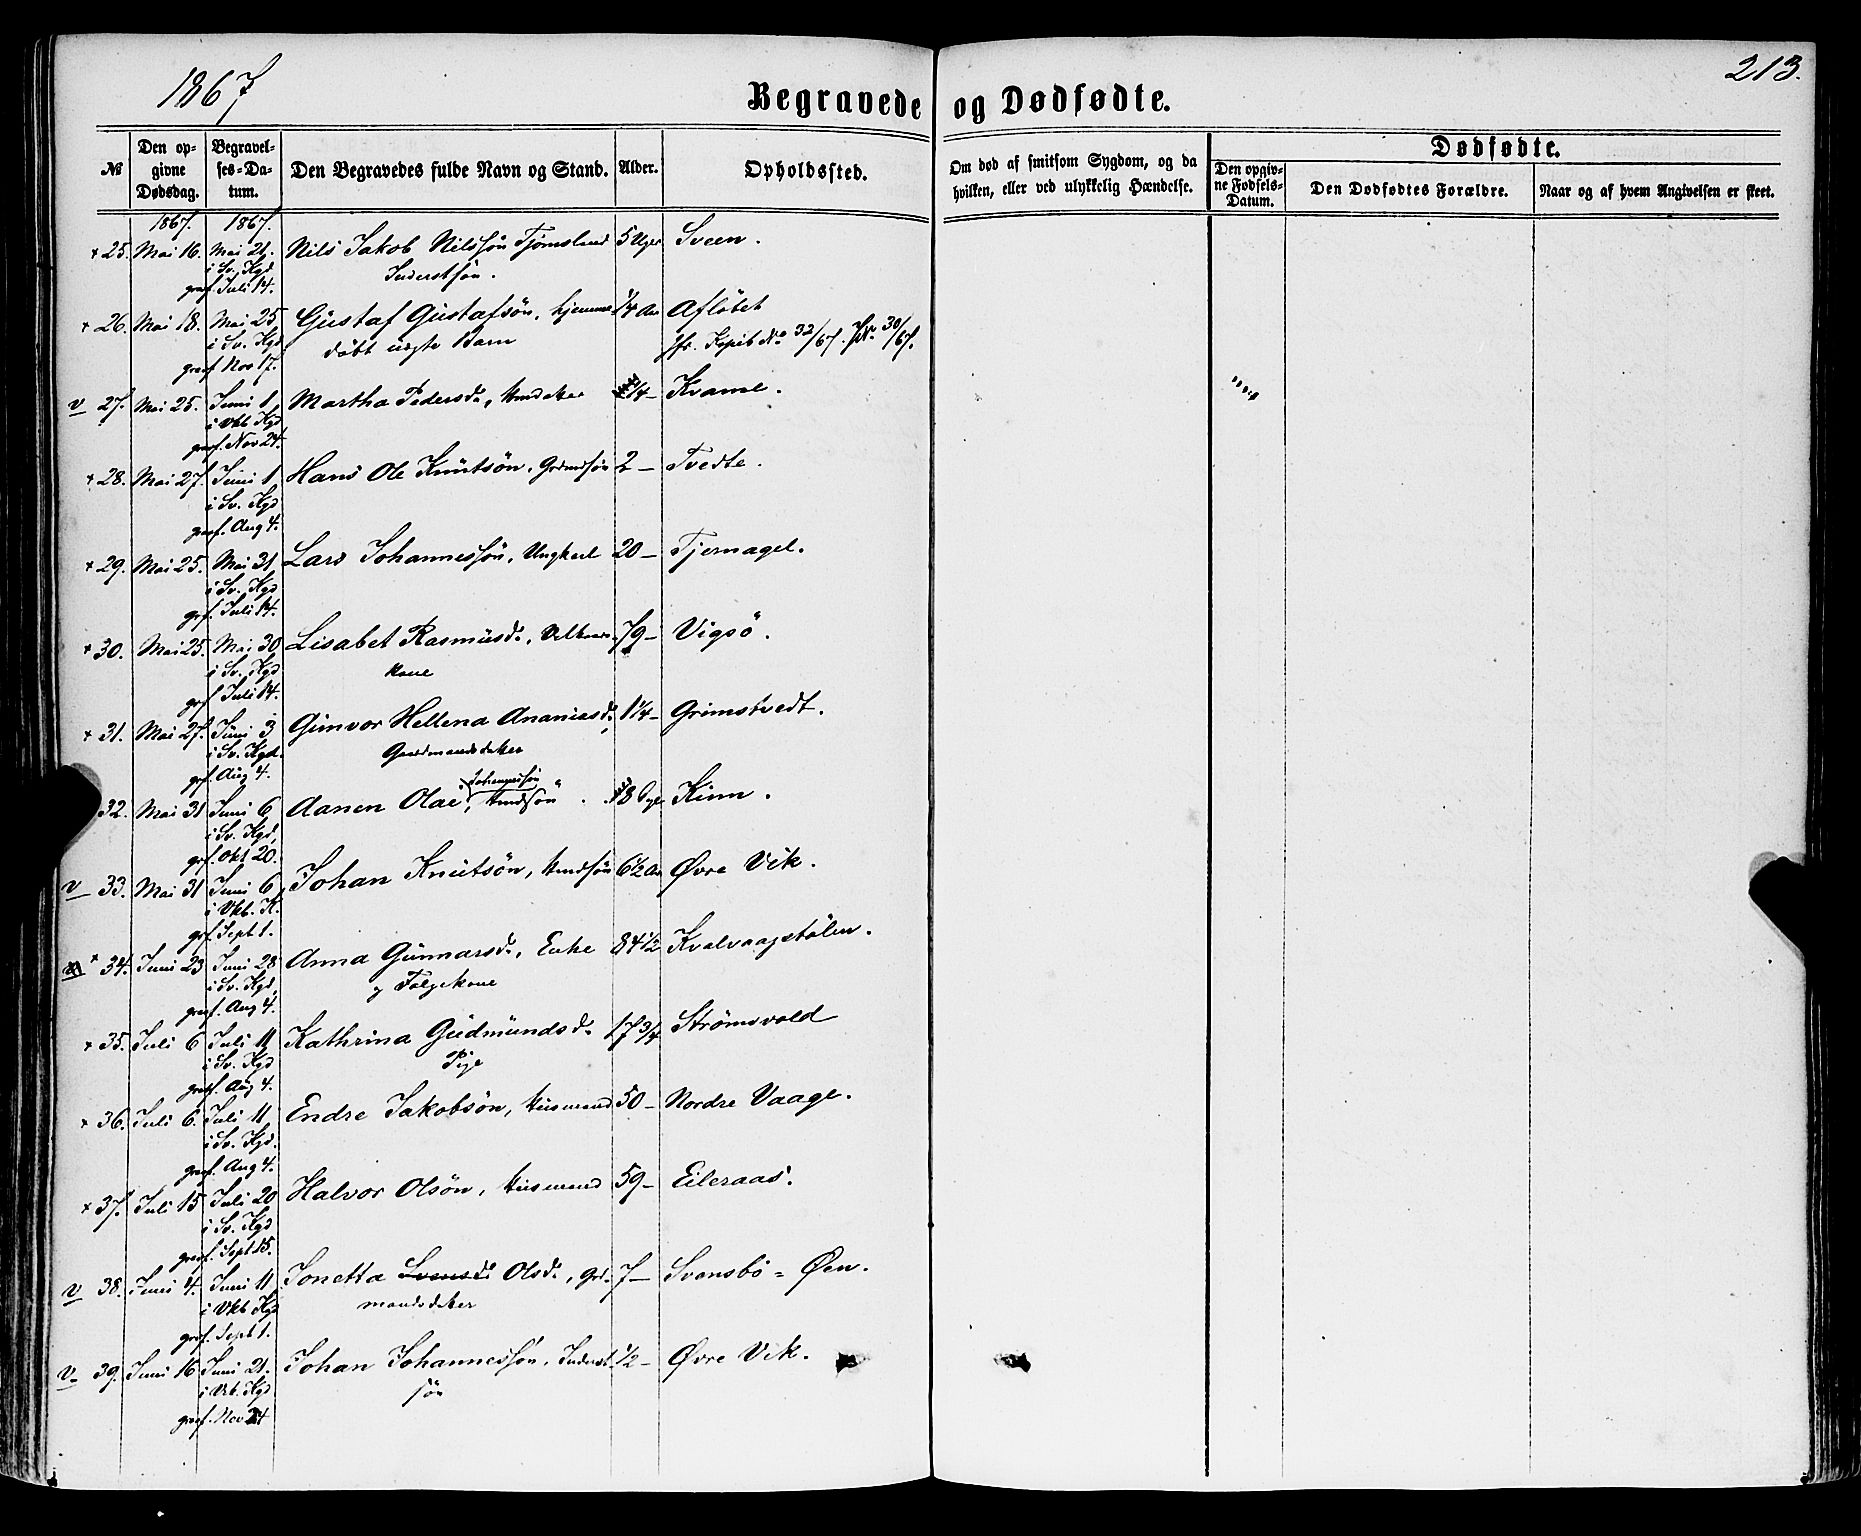 1867
213.
Begravede og Dødfødte.
№
Den opgivne Dødsdag.
Begravelses-Datum.
Den Begravedes fulde Navn og Stand.
Alder.
Opholdssted.
Om død af smitsom Sygdom, og da hvilken, eller ved ulykkelig Hændelse.
Dødfødte.
Den opgivne Fødsels-Datum.
Den Dødfødtes Forældre.
Naar og af hvem Angivelsen er skeet.
1867. 1867.
+ 25. Mai 16. Mai 21. Nils Jakob Nilssön Tjomsland 5 Uger Sveen.
i Sv. Kgd Inderstsön.
graf Juli 14.
+ 26. Mai 18. Mai 25 Gustaf Gustafsön, hjemme 1/4 Aar Aflöbet
i Sv. Kgd döbt uægte Barn jfr. Kopib No 32/67. No 30/67.
graf Nov 17.
v 27. Mai 25. Juni 1 Martha Pedersd., 1/4 – Kvame.
i Vkb Kgd
graf. Nov 24.
+ 28. Mai 27. Juni 1 Hans Ole Knutsön, Grdmdsön 2 – Tvedte.
i Sv. Kgd
graf. Aug 4.
+ 29. Mai 25. Mai 31 Lars Johannessön, Ungkarl 20 – Tjernagel.
i Sv. Kgd
grf. Juli 14.
+ 30. Mai 25. Mai 30 Lisabet Rasmusd., 79 – Vigsö.
i Sv. Kgd kone
grf Juli 14.
+ 31. Mai 27. Juni 3 Gunvor Hellena Ananiasd., 1 1/4 – Grimstvedt.
i Sv. Kgd. Gaardmandsdatter
grf. Aug 4.
Johannessön
32. Mai 31 Juni 6 Aanen Olai, Hmdsön 8 Dage Kinn.
i Sv. Kgd,
grf. Okt 20.
v 33. Mai 31 Juni 6 Johan Knutsön, Hmdsön 6 1/2 Aar Øvre Vik.
i Vkb. K.
grf. Sept 1.
+ 34. Juni 23 Juni 28 Anna Gunnarsd., Enke 84 1/2 Kvalvaagstölen.
i Sv. Kgd, og Folgekone
graf. Aug 4.
+ 35. Juli 6 Juli 11 Kathrina Gudmundsd. 17 3/4 Strömsvold
i Sv. Kgd Pige
graf. Aug 4.
+ 36. Juli 6. Juli 11 Endre Jakobsön, Husmand 50 – Nordre Vaage.
i Sv. Kgd.
graf. Aug 4.
+ 37. Juli 15 Juli 20 Halvor Olsön, Husmand 59 – Eileraas.
i Sv. Kgd
graf. Sept 15.
v 38. Juni 4. Juni 11 Jonetta Svensd. Olsd., Grd- 7 – Svensbö = Øen.
i Vkb Kgd mandsdatter
graf. Sept 1.
v 39. Juni 16 Juni 21. Johan Johannessön, Inderst- 1/2 – Øvre Vik.
i Vkb. Kgd sön
graf. Nov 24